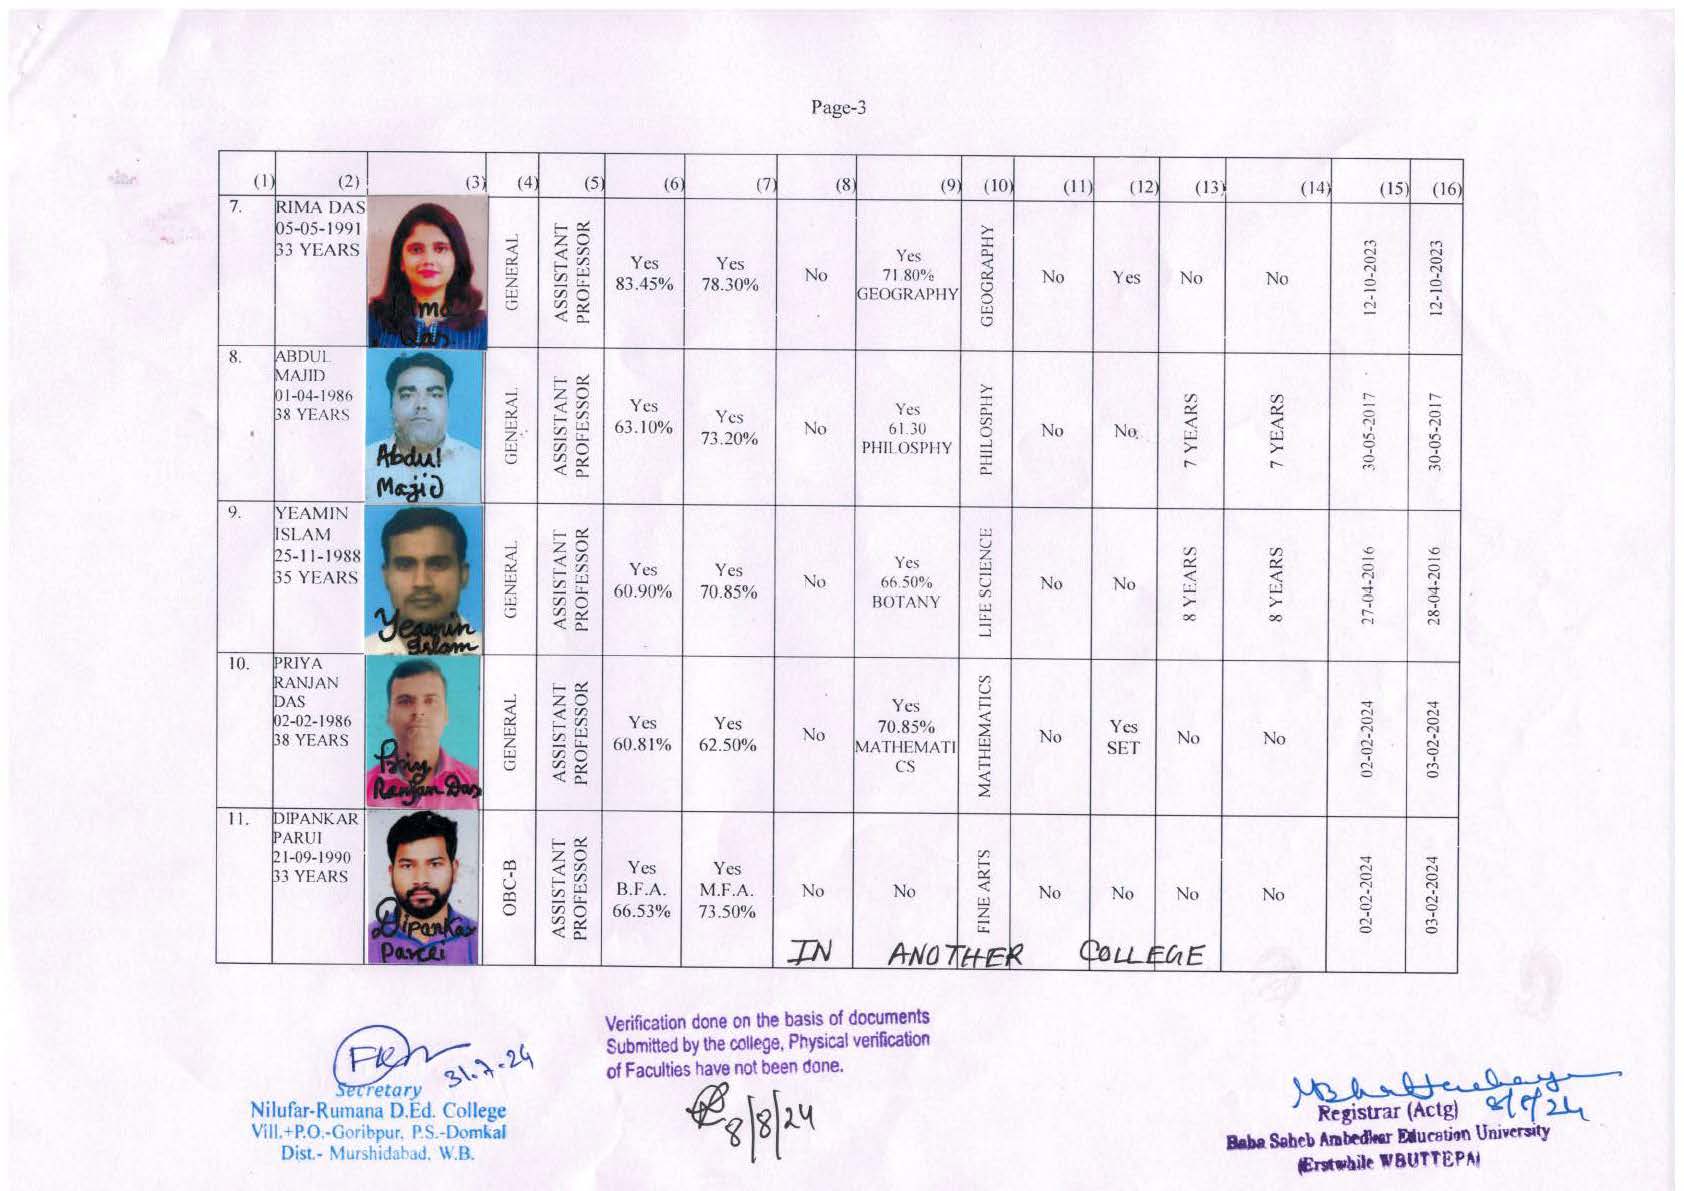 Page-3
(1) (2) (3) (4) (5) (6) (7) (8) (9) (10) (11) (12) (13) (14) (15) (16)
7. RIMA DAS
05-05-1991
33 YEARS
Rima
Das
GENERAL
ASSISTANT
PROFESSOR
Yes
83.45%
Yes
78.30%
No
Yes
71.80%
GEOGRAPHY
GEOGRAPHY
No
Yes
No
No
12-10-2023
12-10-2023
8. ABDUL
MAJID
01-04-1986
38 YEARS
Abdul
Majid
GENERAL
ASSISTANT
PROFESSOR
Yes
63.10%
Yes
73.20%
No
Yes
61.30
PHILOSPHY
PHILOSPHY
No
No
7 YEARS
7 YEARS
30-05-2017
30-05-2017
9. YEAMIN
ISLAM
25-11-1988
35 YEARS
Yeamin
Islam
GENERAL
ASSISTANT
PROFESSOR
Yes
60.90%
Yes
70.85%
No
Yes
66.50%
BOTANY
LIFE SCIENCE
No
No
8 YEARS
8 YEARS
27-04-2016
28-04-2016
10. PRIYA
RANJAN
DAS
02-02-1986
38 YEARS
Priya
Ranjan Das
GENERAL
ASSISTANT
PROFESSOR
Yes
60.81%
Yes
62.50%
No
Yes
70.85%
MATHEMATI
CS
MATHEMATICS
No
Yes
SET
No
No
02-02-2024
03-02-2024
11. DIPANKAR
PARUI
21-09-1990
33 YEARS
Dipankar
Parui
OBC-B
ASSISTANT
PROFESSOR
Yes
B.F.A.
66.53%
Yes
M.F.A.
73.50%
No
No
FINE ARTS
No
No
No
No
02-02-2024
03-02-2024
IN ANOTHER COLLEGE
31.7.24
Secretary
Nilufar-Rumana D.Ed. College
Vill.+P.O.-Goribpur, P.S.-Domkal
Dist.- Murshidabad, W.B.
Verification done on the basis of documents
Submitted by the college, Physical verification
of Faculties have not been done.
8/8/24
Registrar (Actg) 8/8/24
Baba Saheb Ambedkar Education University
(Erstwhile WBUTTEPA)